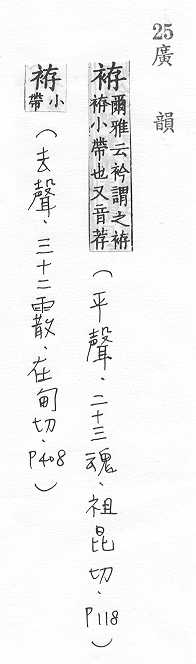 25
廣韻
袸
爾雅云衿謂之袸
袸小帶也又音荐
(平聲、二十三魂、祖昆切、P118)
袸
小
帶
(去聲、三十二霰、在甸切、P408)